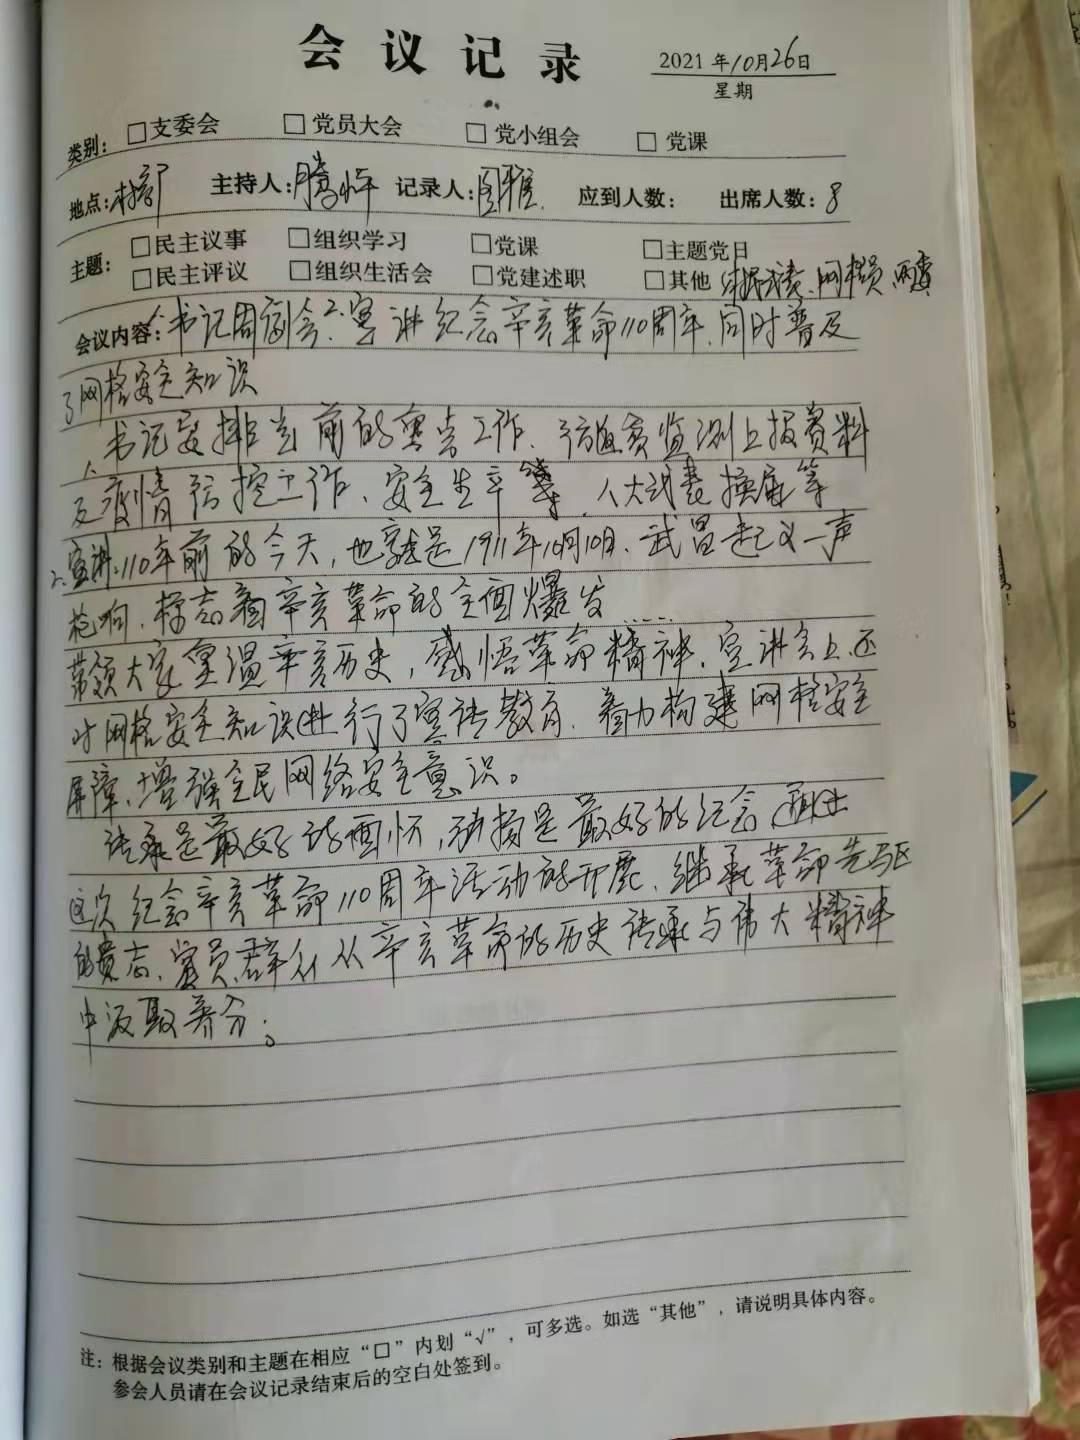 会议记录
2021年10月26日
星期
类别：□支委会 □党员大会 □党小组会 □党课
地点：村部 主持人：腾 记录人：图雅 应到人数： 出席人数：8
主题：□民主议事 □组织学习 □党课 □主题党日
□民主评议 □组织生活会 □党建述职 □其他 村民代表、网格员、两委
会议内容：1、书记周例会2、宣讲纪念辛亥革命110周年、同时普及
了网格安全知识
1、书记安排当前的重点工作、防返贫监测上报资料
及疫情防控工作、安全生产等、人大代表换届等
2、宣讲：110年前的今天，也就是1911年10月10日、武昌起义一声
枪响，标志着辛亥革命的全面爆发
带领大家重温辛亥历史，感悟革命精神、宣讲会上还
对网格安全知识进行了宣传教育、着力构建网格安全
屏障、增强全民网络安全意识。
传承是最好的缅怀，弘扬是最好的纪念
这次纪念辛亥革命110周年活动的开展、继承革命先驱
的遗志、党员、群众从辛亥革命的历史传承与伟大精神
中汲取养分。
注：根据会议类别和主题在相应“□”内划“√”，可多选。如选“其他”，请说明具体内容。
参会人员请在会议记录结束后的空白处签到。